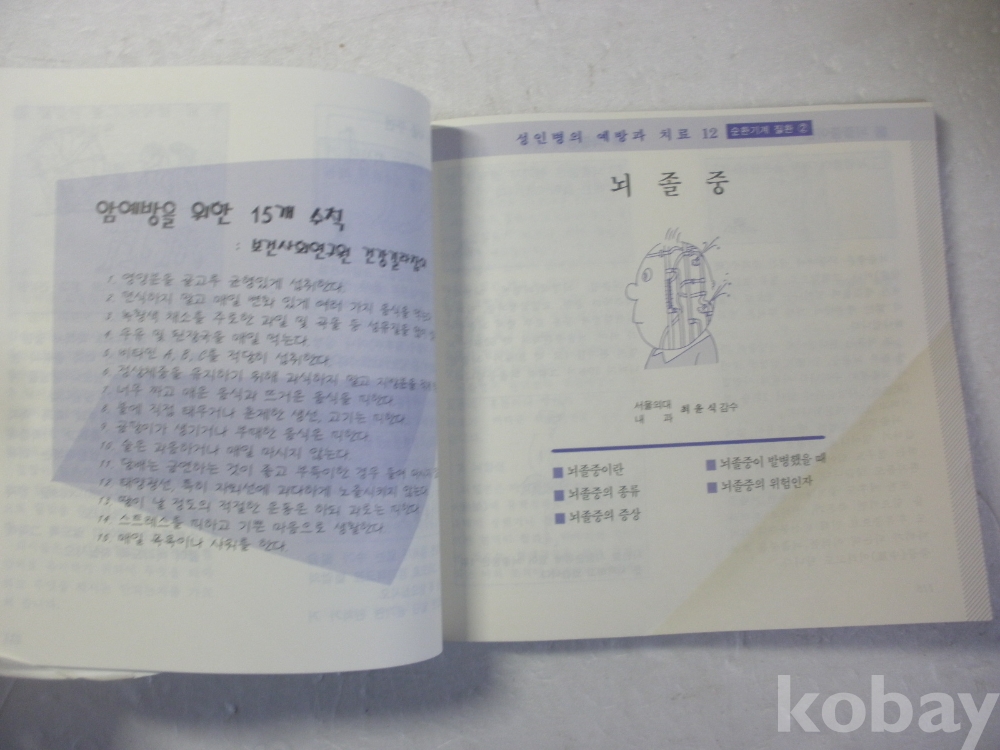 암예방을 위한 15개 수칙
: 보건사회연구원
1. 영양분을 골고루 균형있게 섭취한다.
2. 편식하지 말고 매일 변화 있게 여러 가지 음식을
3. 녹황색 채소를 주로한 과일 및 곡물 등 섬유질을
4. 우유 및 된장국을 매일 먹는다.
5. 비타민 A, B, C를 적당히 섭취한다.
6. 정상체중을 유지하기 위해 과식하지 말고 지방분을
7. 너무 짜고 매운 음식과 뜨거운 음식을 피한다.
8. 불에 직접 태우거나 훈제한 생선, 고기는 피한다.
9. 곰팡이가 생기거나 부패한 음식은 피한다.
10. 술은 과음하거나 매일 마시지 않는다.
11. 담배는 금연하는 것이 좋고 부득이한 경우 줄여
12. 태양광선, 특히 자외선에 과다하게 노출시키지 않는다.
13. 땀이 날 정도의 적절한 운동은 하되 과로는 피한다.
14. 스트레스를 피하고 기쁜 마음으로 생활한다.
15. 매일 목욕이나 샤워를 한다.
성인병의 예방과 치료 12 순환기계 질환 2
뇌 졸 중
서울의대
내 과
최윤식 감수
■ 뇌졸중이란
■ 뇌졸중의 종류
■ 뇌졸중의 증상
■ 뇌졸중이 발병했을 때
■ 뇌졸중의 위험인자
kobay